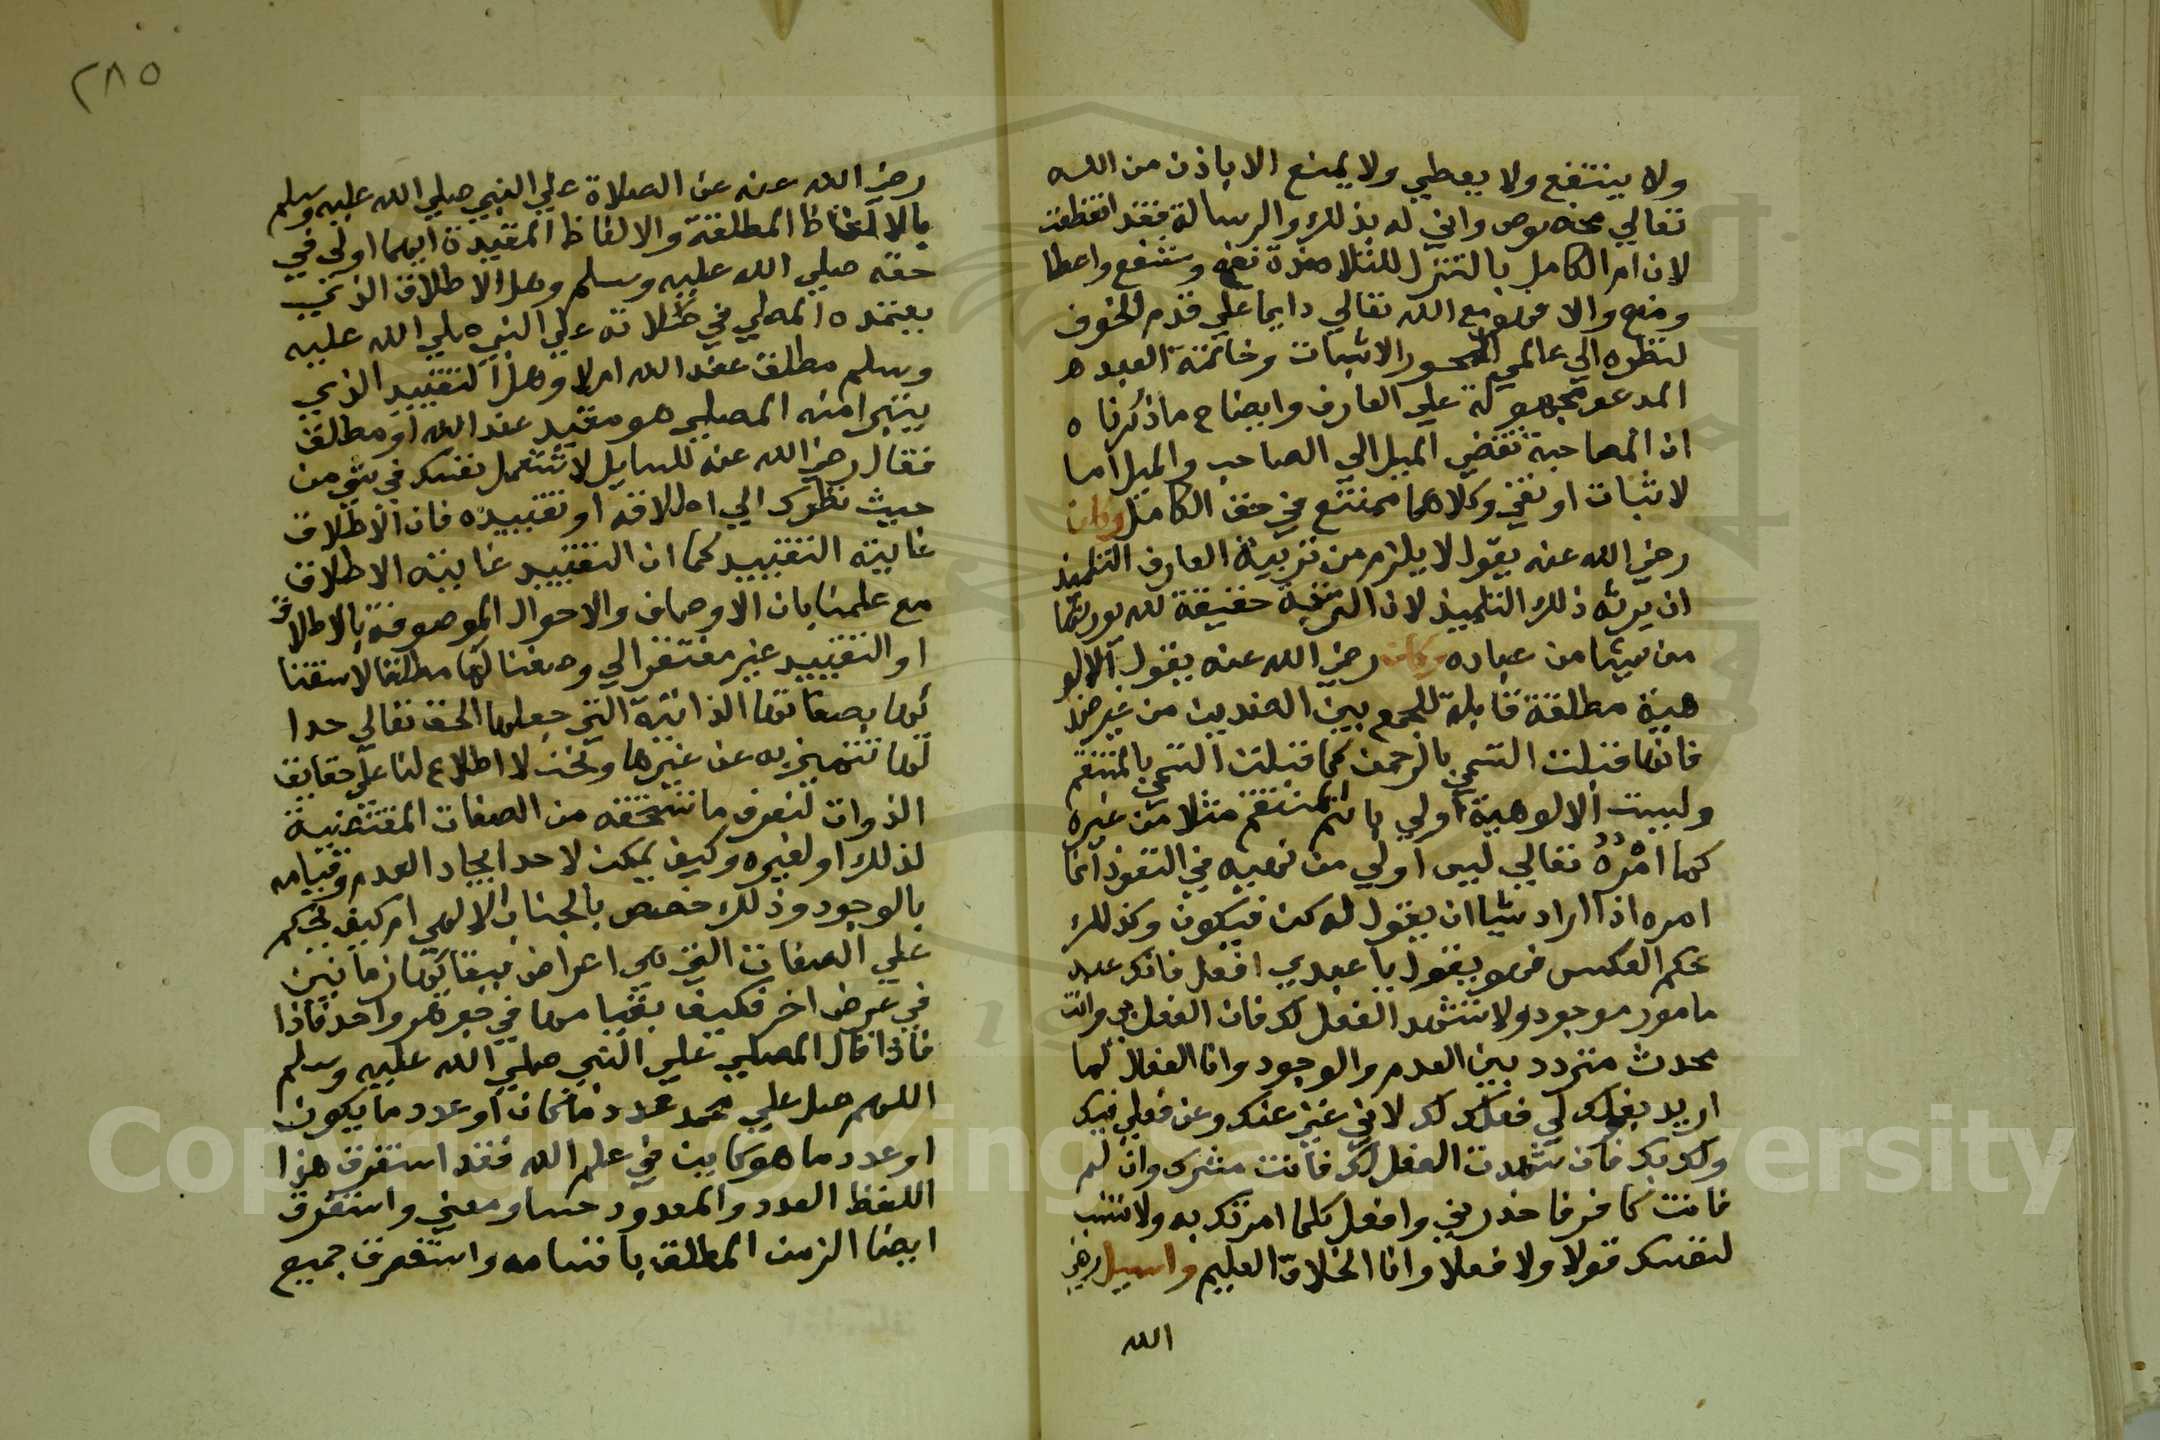 ولا ينتفع ولا يعطي ولا يمنع الا باذن من الله
تعالي مخصوص واني له بذلك والرسالة فقد انقطعت
لان امر الكامل بالتنزل للتلامذة نفع وشفع واعطا
ومنع والا فهو مع الله تعالي دايما علي قدم الخوف
لنظره الي عالمي المحو والاثبات وخاتمة العبد
المدعو مجهولة علي العارف وايضاح ما ذكرناه
ان المصاحبة تقتضي الميل الي الصاحب والميل اما
لاثبات او نفي وكلاهما ممتنع في حق الكامل وكان
رضي الله عنه يقول لا يلزم من تربية العارف التلميذ
ان يرثه ذلك التلميذ لان التربية حقيقة لله يورثها
من يشا من عباده وكان رضي الله عنه يقول الالو
هية مطلقة قابلة للجمع بين الضدين من غير ضد
فانها قبلت التسمي بالرحمن كما قبلت التسمي بالمنتقم
وليست الالوهية اولي باسم المنتقم مثلا من غيره
كما امره تعالي ليس اولي من نهيه في النفوذ انما
امره اذا اراد شيا ان يقول له كن فيكون وكذلك
بحكم العكس فهو يقول يا عبدي افعل فانك عبد
مامور موجود ولا تشهد الفعل لك فان الفعل بي وانت
محدث متردد بين العدم والوجود وانا الفعال لما
اريد بفعلك لي فعلك لك لاني غني عنك وعن فعلي فيك
ولك بك فان شهدت الفعل لك فانت مشرك وان لم
فانت كافر فاحذرني وافعل كلما امرتك به ولا تنسب
لنفسك قولا ولا فعلا وانا الخلاق العليم وسيل رضي
الله
٢٨٥
رضي الله عنه عن الصلاة علي النبي صلي الله عليه وسلم
بالالفاظ المطلقة والالفاظ المقيدة ايهما اولي في
حقه صلي الله عليه وسلم وهل الاطلاق الذي
يعتمده المصلي في صلاته علي النبي صلي الله عليه
وسلم مطلق عند الله ام لا وهل التقييد الذي
يتبرا منه المصلي هو مقيد عند الله او مطلق
فقال رضي الله عنه للسايل لا تشتغل نفسك في شي من
حيث نظرك الي اطلاقه او تقييده فان الاطلاق
غايته التقييد كما ان التقييد غايته الاطلاق
مع علمنا بان الاوصاف والاحوال الموصوفة بالاطلاق
او التقييد غير مفتقر الي وصفنا لها مطلقا لاستغنا
ئها بصفاتها الذاتية التي جعلها الحق تعالي حدا
لها تتميز به عن غيرها ونحن لا اطلاع لنا علي حقايق
الذوات لنعرف ما تستحقه من الصفات المقتضية
لذلك او لغيره وكيف يمكن لاحد ايجاد العدم وقيامه
بالوجود وذلك خصيص بالجناب الالهي ام كيف نحكم
علي الصفات التي هي اعراض ببقائها زمانين
في عرض اخر فكيف بقيامها في جوهر واحد فاذا
فاذا قال المصلي علي النبي صلي الله عليه وسلم
اللهم صل علي محمد عدد ما كان او عدد ما يكون
او عدد ما هو كاين في علم الله فقد استغرق هذا
اللفظ العدد والمعدود حسا ومعني واستغرق
ايضا الزمن المطلق باقسامه واستغرق جميع
Copyright © King Saud University